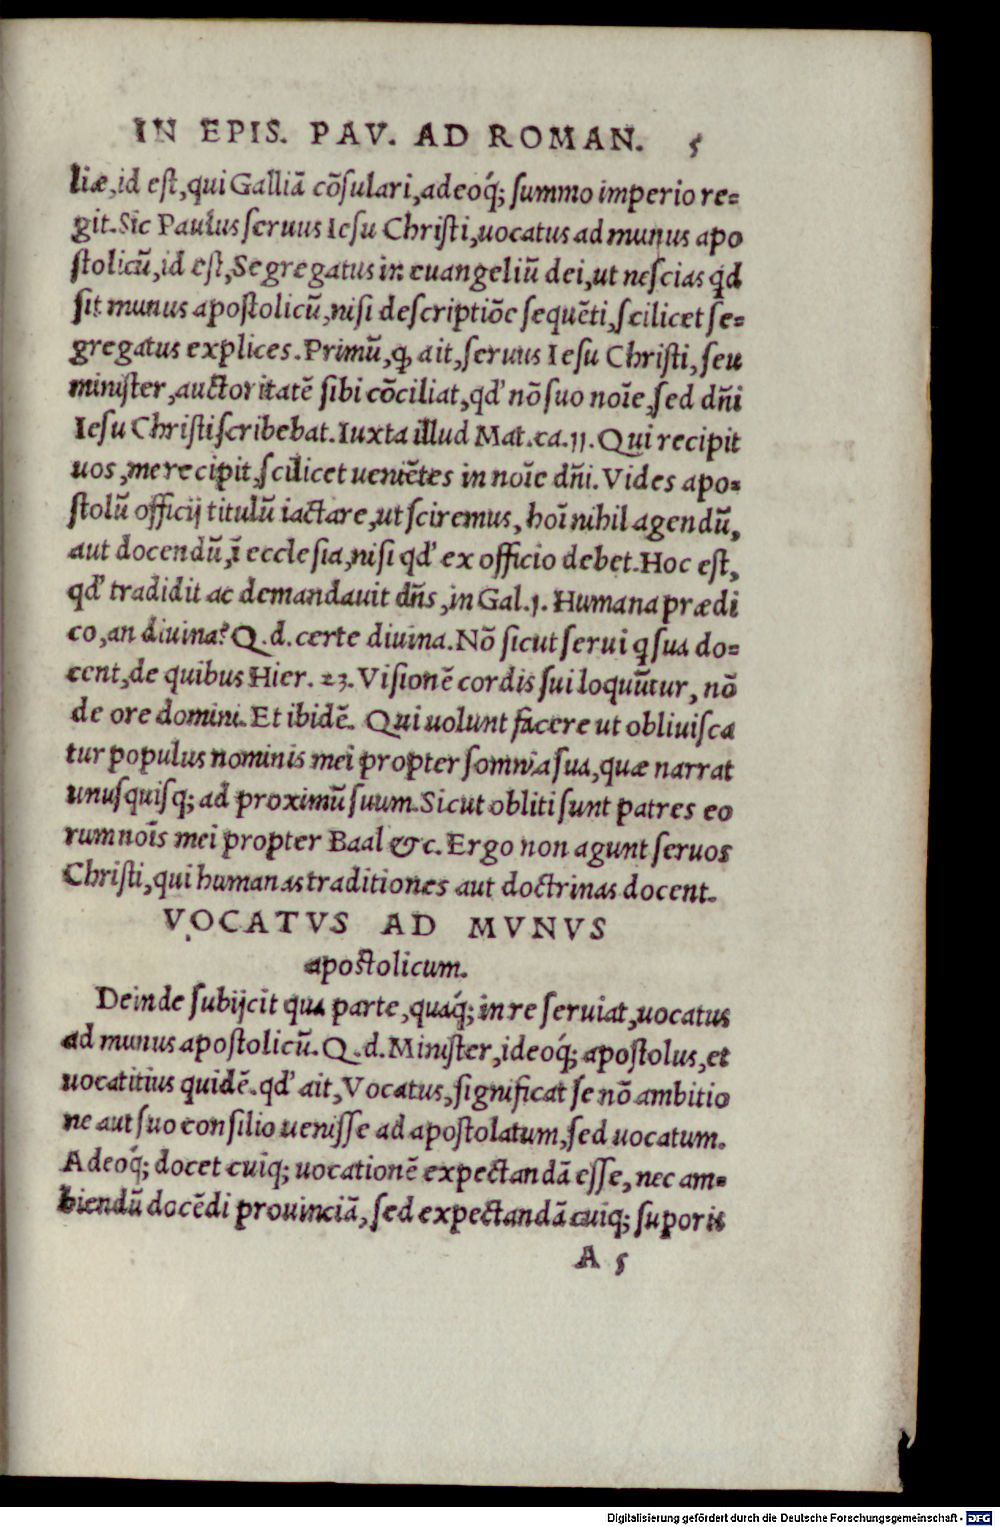 IN EPIS. PAV. AD ROMAN. 5
liæ, id eſt, qui Galliā cōſulari, adeoq́; ſummo imperio re=
git. Sic Paulus ſeruus Ieſu Chriſti, uocatus ad munus apo
ſtolicū, id eſt, Segregatus in euangeliū dei, ut neſcias qd
ſit munus apoſtolicū, niſi deſcriptiōe ſequēti, ſcilicet ſe=
gregatus explices. Primū, ꝙ ait, ſeruus Ieſu Chriſti, ſeu
miniſter, auctoritatē ſibi cōciliat, qd' nō ſuo noīe, ſed dn̄i
Ieſu Chriſti ſcribebat. Iuxta illud Mat. ca. 11. Qui recipit
uos, me recipit, ſcilicet ueniētes in noīe dn̄i. Vides apo=
ſtolū officij titulū iactare, ut ſciremus, hoī nihil agendū,
aut docendū, ī eccleſia, niſi qd' ex officio debet. Hoc eſt,
qd' tradidit ac demandauit dn̄s, in Gal. 1. Humana prædi
co, an diuina? Q. d. certe diuina. Nō ſicut ſerui q ſua do=
cent, de quibus Hier. 23. Viſionē cordis ſui loquūtur, nō
de ore domini. Et ibidē. Qui uolunt facere ut obliuiſca
tur populus nominis mei propter ſomnia ſua, quæ narrat
unuſquiſq; ad proximū ſuum. Sicut obliti ſunt patres eo
rum noīs mei propter Baal &c. Ergo non agunt ſeruos
Chriſti, qui humanas traditiones aut doctrinas docent.
VOCATVS AD MVNVS
apoſtolicum.
Deinde ſubijcit qua parte, quaq́; in re ſeruiat, uocatus
ad munus apoſtolicū. Q. d. Miniſter, ideoq́; apoſtolus, et
uocatitius quidē. qd' ait, Vocatus, ſignificat ſe nō ambitio
ne aut ſuo conſilio ueniſſe ad apoſtolatum, ſed uocatum.
Adeoq́; docet cuiq; uocationē expectandā eſſe, nec am=
biendū docēdi prouinciā, ſed expectandā cuiq; ſuporis
A 5
Digitalisierung gefördert durch die Deutsche Forschungsgemeinschaft - DFG